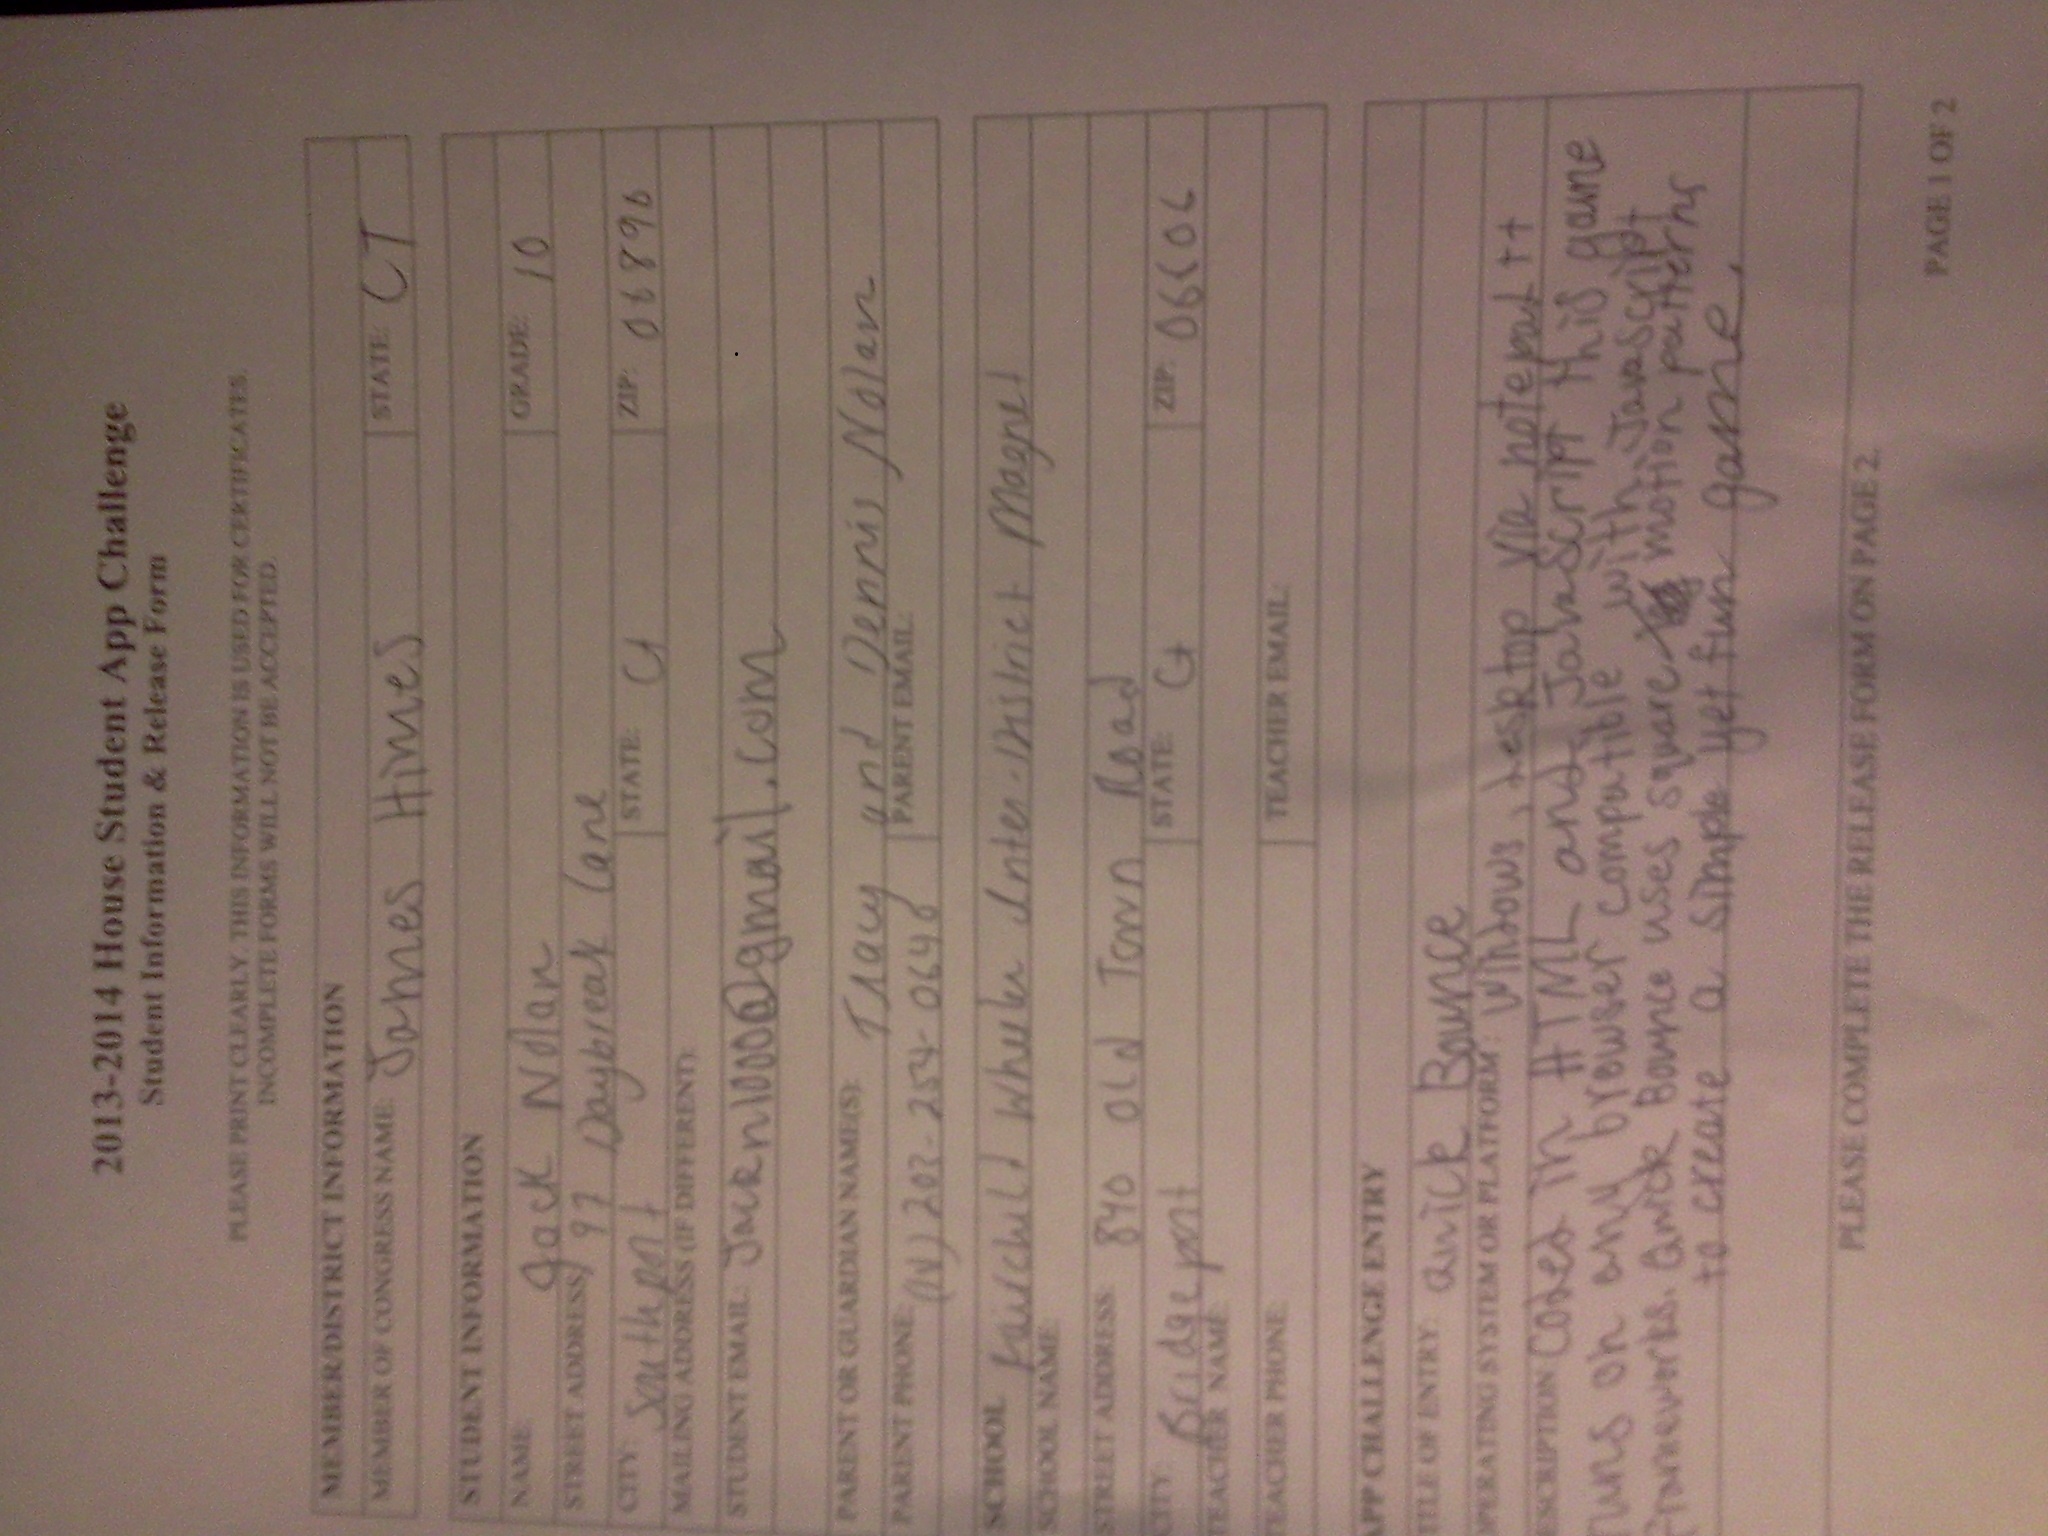 2013-2014 House Student App Challenge
Student Information & Release Form
PLEASE PRINT CLEARLY. THIS INFORMATION IS USED FOR CERTIFICATES.
INCOMPLETE FORMS WILL NOT BE ACCEPTED.
MEMBER/DISTRICT INFORMATION
MEMBER OF CONGRESS NAME: James Himes STATE: CT
STUDENT INFORMATION
NAME: Jack Nolan GRADE: 10
STREET ADDRESS: 97 Daybreak Lane
CITY: Southport STATE: Ct ZIP: 06890
MAILING ADDRESS (IF DIFFERENT):
STUDENT EMAIL: @gmail.com
PARENT OR GUARDIAN NAME(S): Tracy and Dennis Nolan
PARENT PHONE: 203-254-0640 PARENT EMAIL:
SCHOOL
SCHOOL NAME: Fairchild Wheeler Inter-District Magnet
STREET ADDRESS: 840 Old Town Road
CITY: Bridgeport STATE: Ct ZIP: 06606
TEACHER NAME:
TEACHER PHONE: TEACHER EMAIL:
APP CHALLENGE ENTRY
TITLE OF ENTRY: Bounce
OPERATING SYSTEM OR PLATFORM: Windows, desktop via notepad++
ESCRIPTION Coded in HTML and JavaScript this game
runs on any browser compatible with JavaScript
frameworks. Bounce uses square motion patterns
to create a simple yet fun game.
PLEASE COMPLETE THE RELEASE FORM ON PAGE 2.
PAGE 1 OF 2